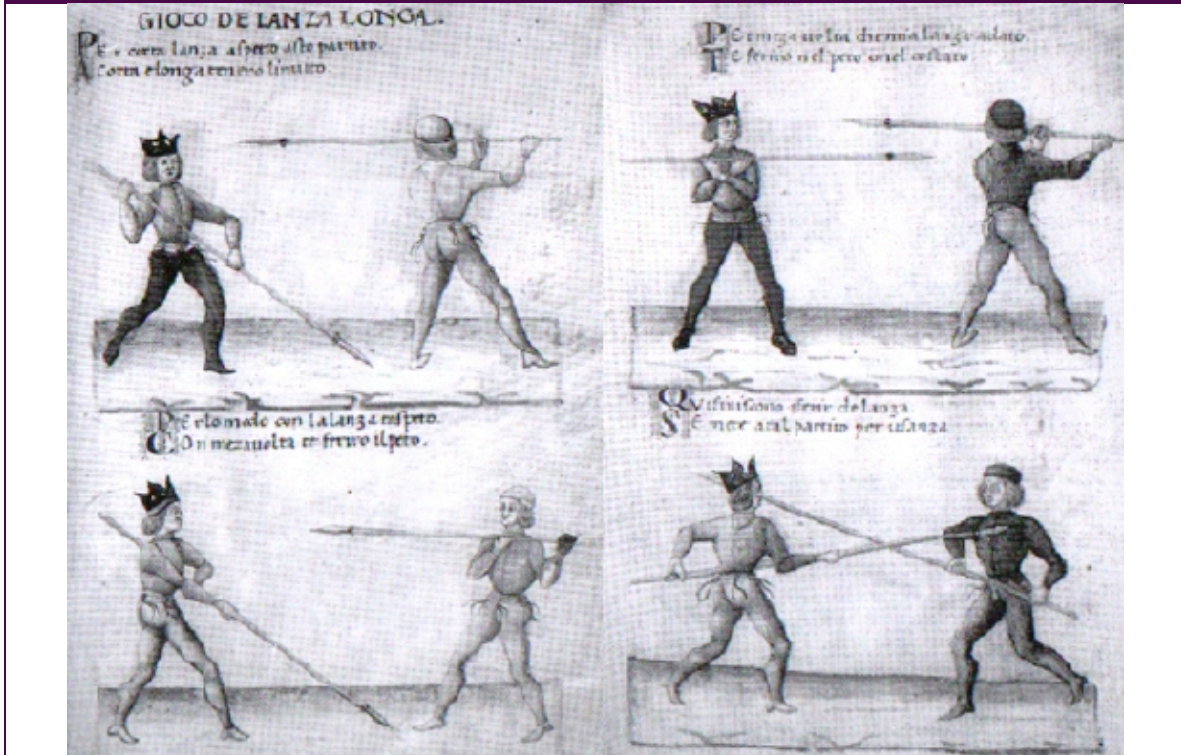 GIOCO DE LANZA LONGA.
PE corta lanza aspeto a sto partito.
A corta e longa
PE meza volta che mia lanza a dato
TE feriro nel peto o nel costato
PE lo modo con la lanza taspeto.
COn meza volta te feriro il peto.
QVi finiscono ferir de lanza
SE mete a tal partito per usanza